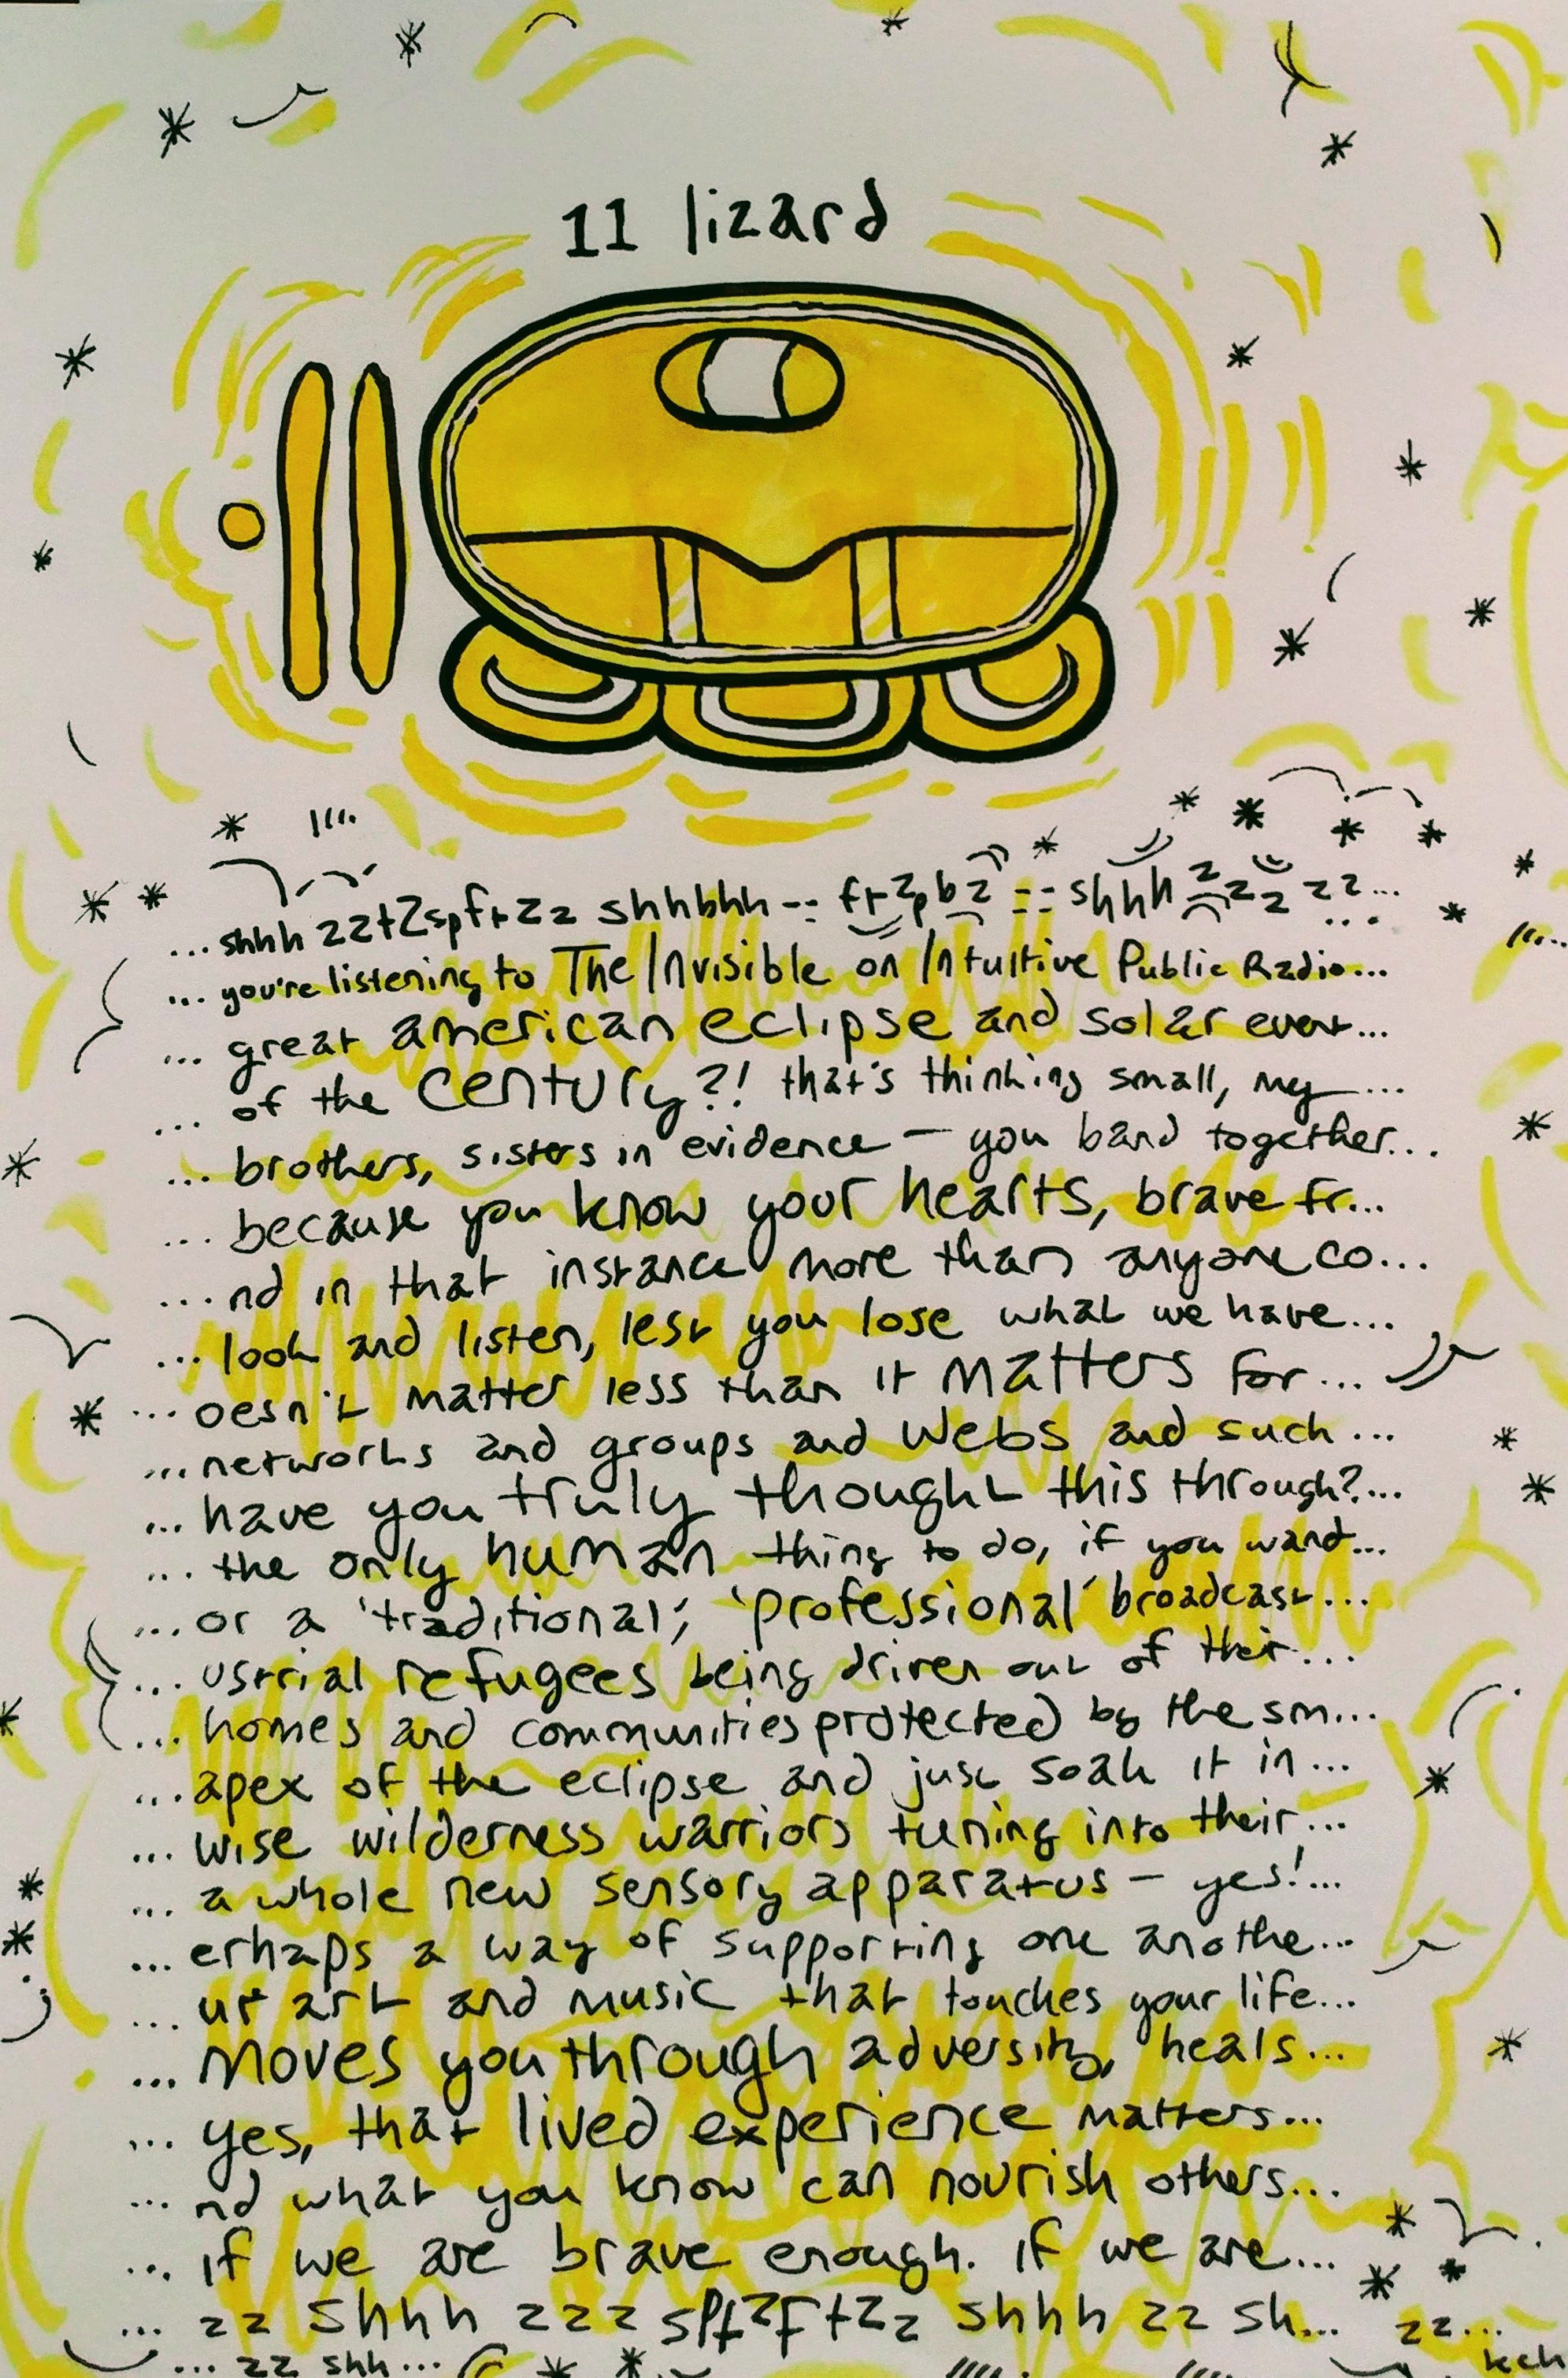 11 lizard
...shhh zztzspfrzz shhhhh-- frzpbz -- shhh z z z zz...
... you're listening to The Invisible on Intuitive Public Radio...
... great american eclipse and solar event...
... of the century?! that's thinking small, my ...
... brothers, sisters in evidence — you band together...
... because you know your hearts, brave fr...
...nd in that instance more than anyone co...
... look and listen, lest you lose what we have...
...oesn't matter less than it matters for...
...networks and groups and webs and such ...
... have you truly thought this through?...
... the only human thing to do, if you want...
... or a 'traditional', 'professional' broadcast...
... ustrial refugees being driven out of their...
... homes and communities protected by the sm...
...apex of the eclipse and just soak it in...
... wise wilderness warriors tuning into their...
... a whole new sensory apparatus — yes!...
... erhaps a way of supporting one anothe...
... ur art and music that touches your life...
... moves you through adversity, heals...
... yes, that lived experience matters...
... nd what you know can nourish others...
... if we are brave enough. if we are...
... zz shhh zzz spfzftzz shhh zz sh... zz...
... zz shh... kch